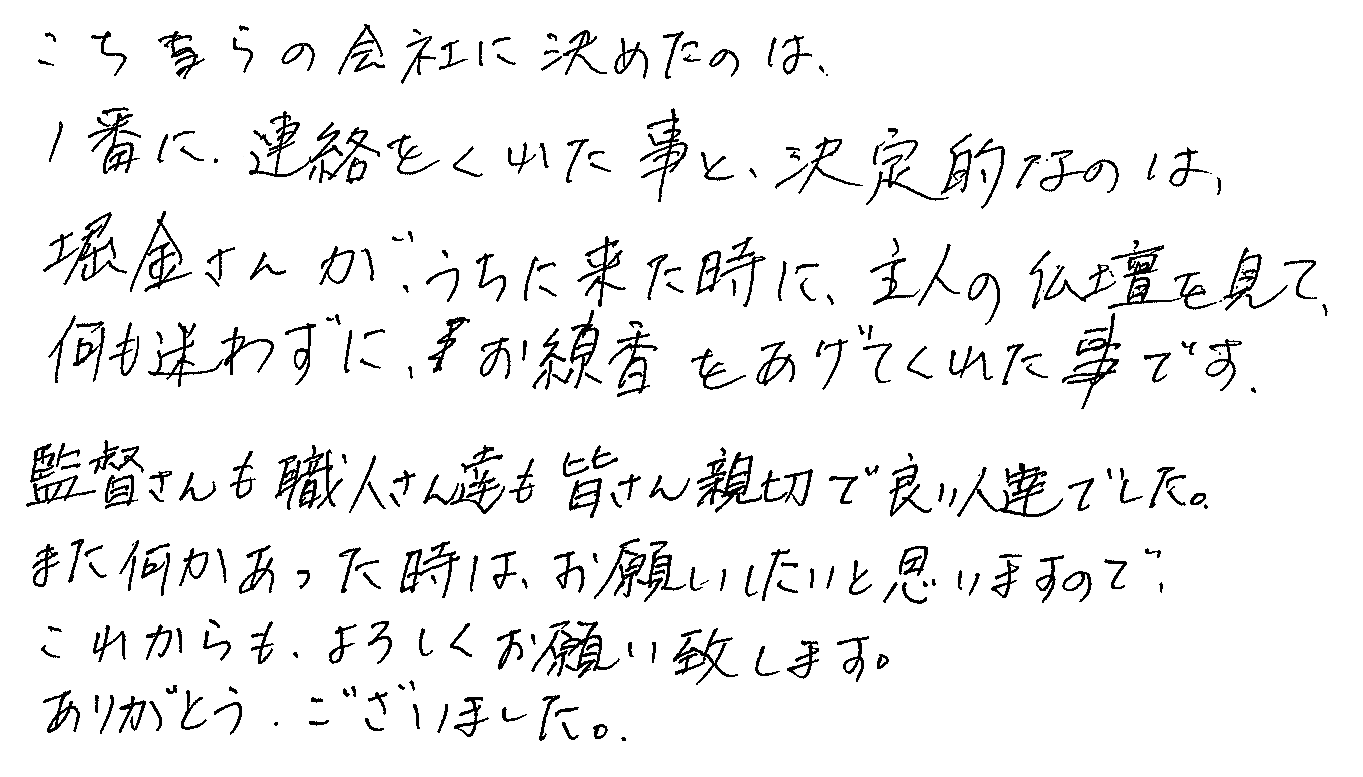 こちらの会社に決めたのは、
1番に、連絡をくれた事と、決定的なのは、
堀金さんが、うちに来た時に、主人の仏壇を見て、
何も迷わずに、お線香をあげてくれた事です。
監督さんも職人さん達も皆さん親切で良い人達でした。
また何かあった時は、お願いしたいと思いますので、
これからも、よろしくお願い致します。
ありがとう、ございました。